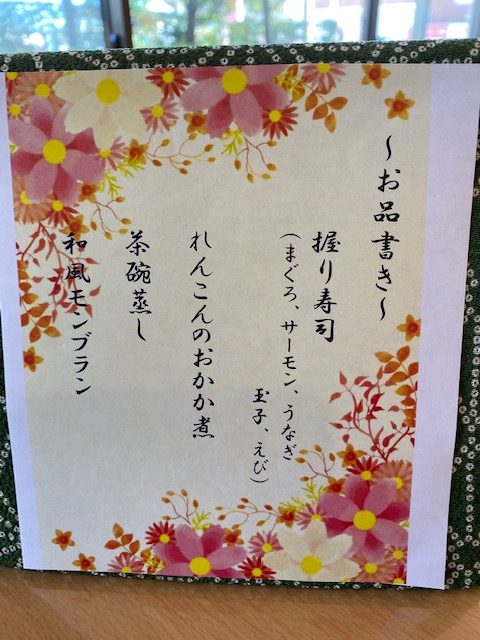 ～お品書き～
握り寿司
(まぐろ、サーモン、うなぎ
玉子、えび)
れんこんのおかか煮
茶碗蒸し
和風モンブラン